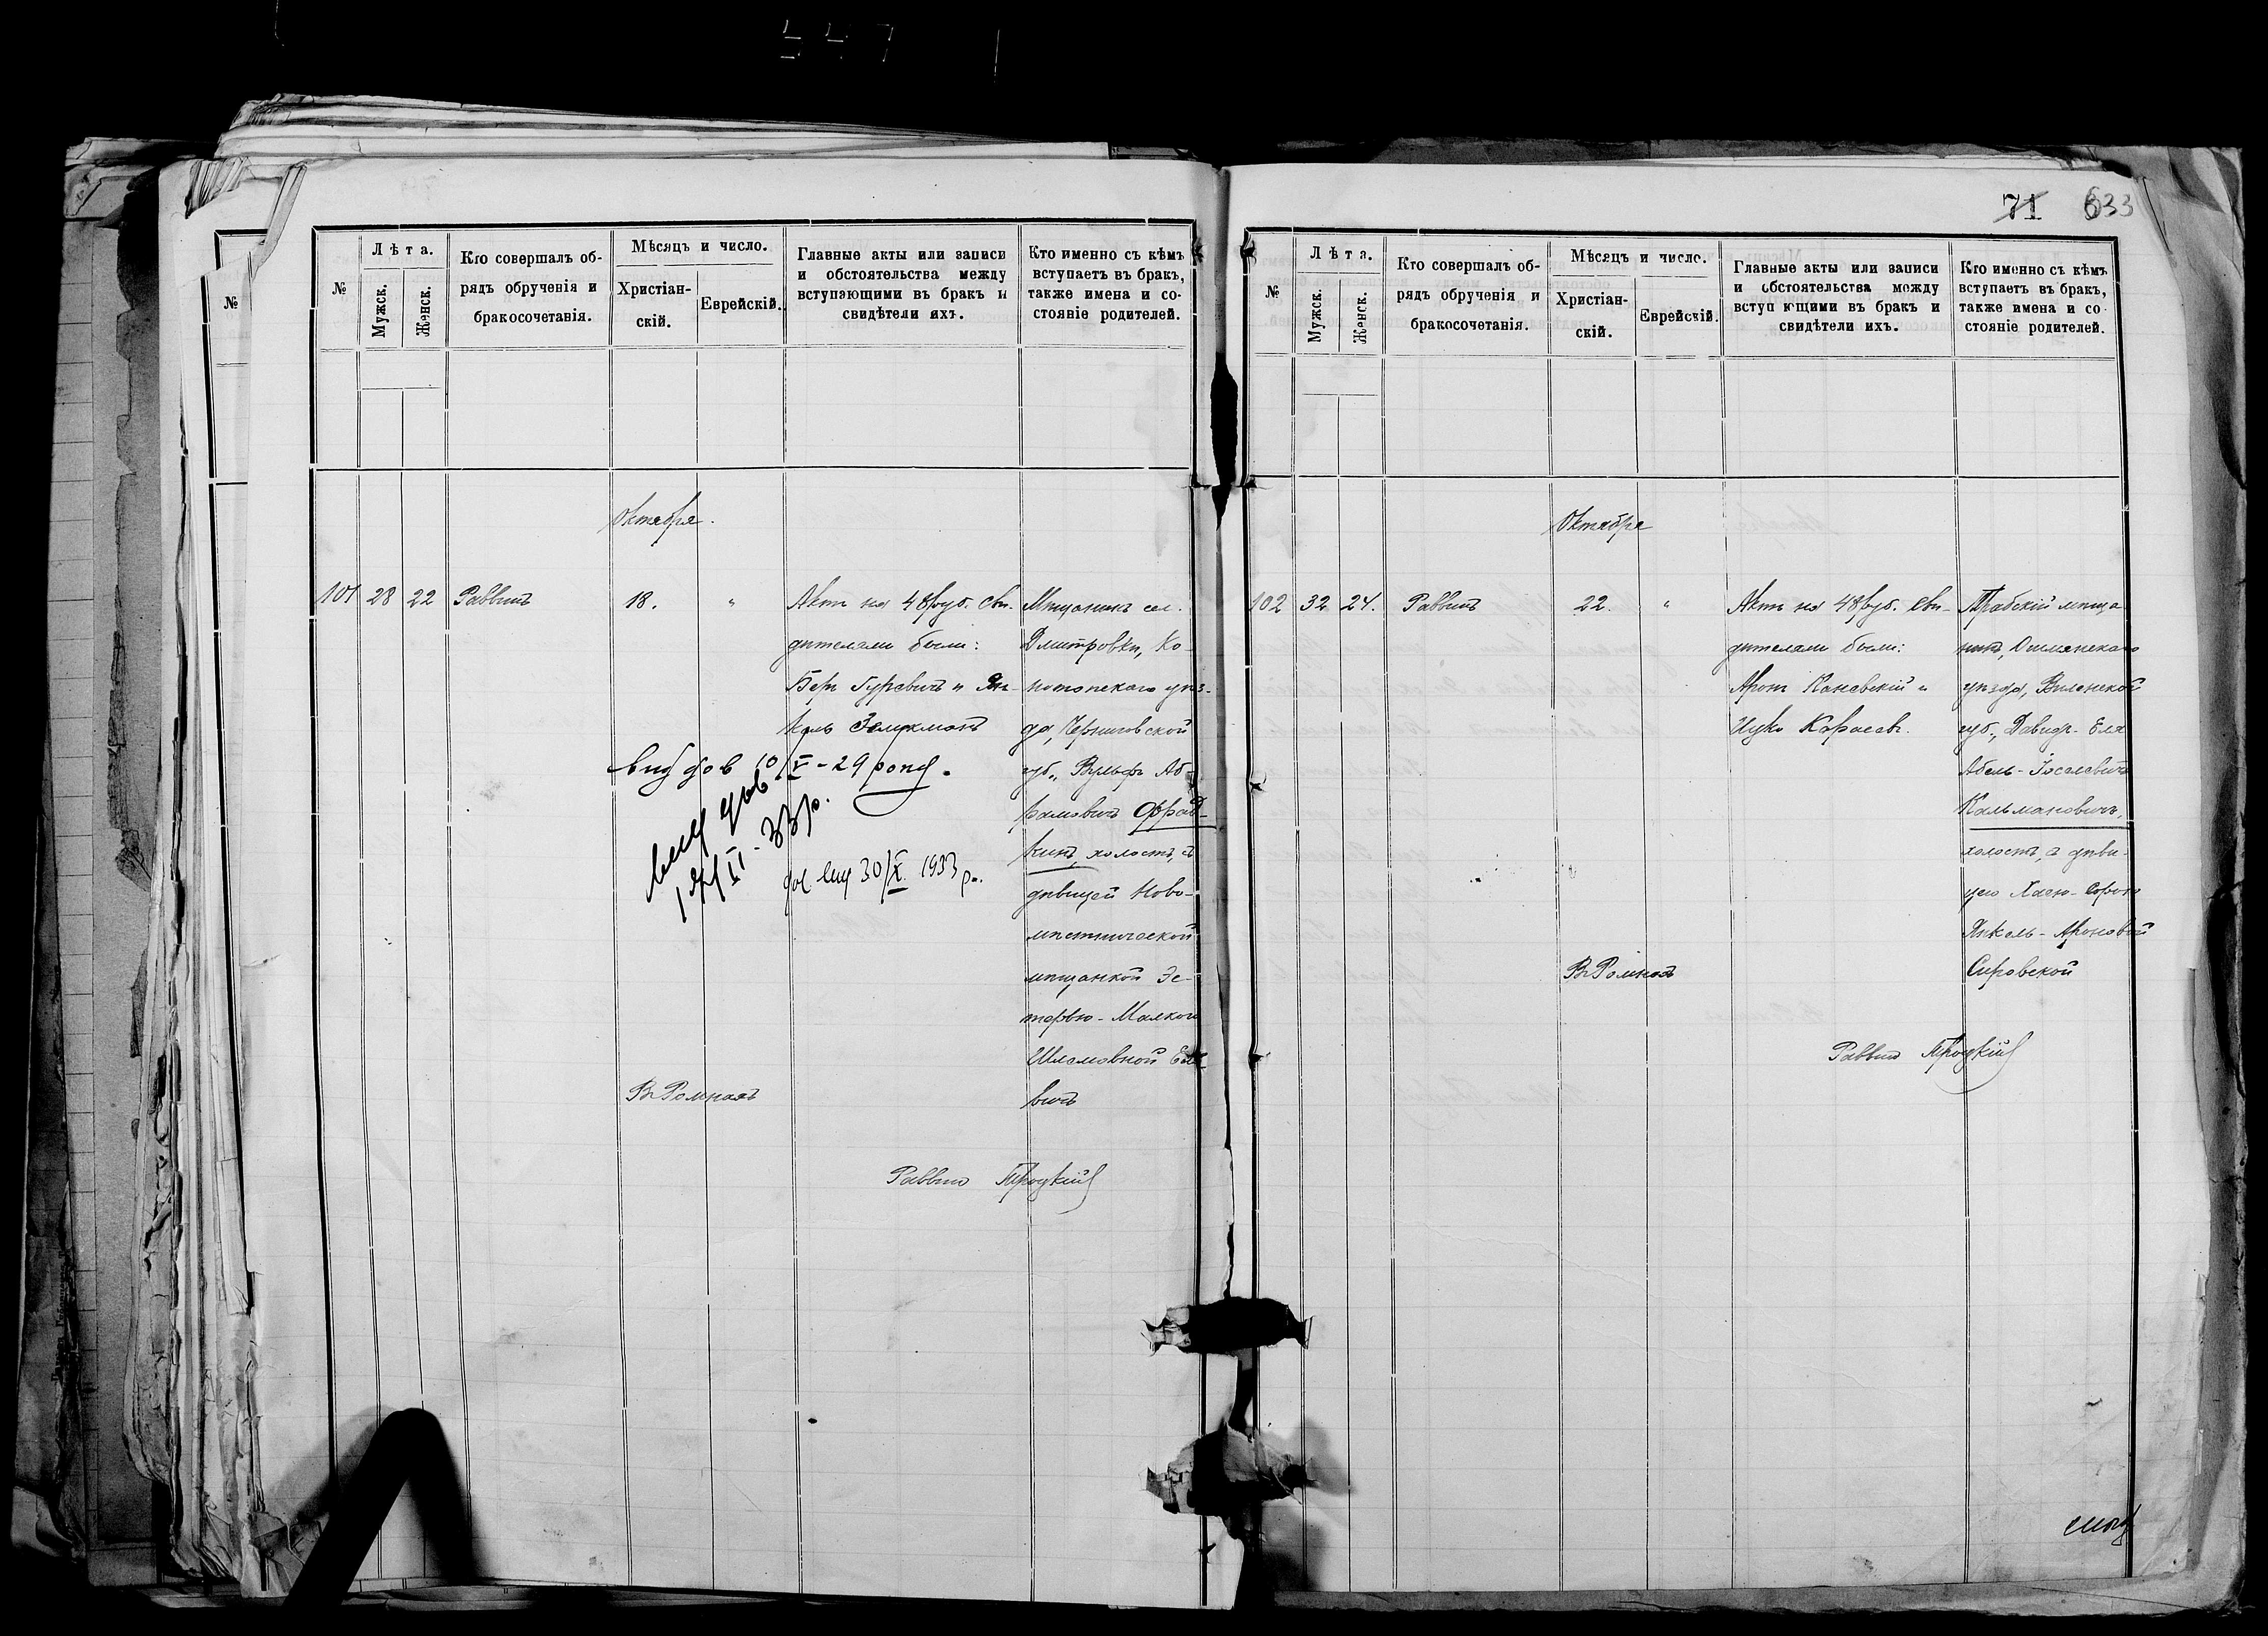 71 633
№
№
Лѣта.
Мужск.
Женск.
Кто совершалъ об-
рядъ обрученія и
бракосочетанія.
Мѣсяцъ и число.
Христіан-
скій.
Еврейскій.
Главные акты или записи
и обстоятельства между
вступающими въ бракъ и
свидѣтели ихъ.
Кто именно съ кѣмъ
вступаетъ въ бракъ,
также имена и со-
стояніе родителей.
Октября.
101 28 22 Раввинъ 18. "
Актъ на 48 руб. Сви-
дѣтелями были:
Беръ Гуревичъ и Ян-
кель Зеликманъ
Мѣщанинъ сел.
Дмитровки, Ко-
нотопскаго уѣз-
да, Черниговской
губ., Вульфъ Аб-
рамовичъ Фрад-
кинъ, холостъ, съ
дѣвицей Ново-
мѣстнической
мѣщанкой Эс-
теръю-Малкой
Шлемовной
вичъ
10/V-29
30/X. 1933 р.
Въ Ромнахъ
Раввинъ Троцкій
№
Лѣта.
Мужск.
Женск.
Кто совершалъ об-
рядъ обрученія и
бракосочетанія.
Мѣсяцъ и число.
Христіан-
скій.
Еврейскій.
Главные акты или записи
и обстоятельства между
вступ ющими въ бракъ и
свидѣтели ихъ.
Кто именно съ кѣмъ
вступаетъ въ бракъ,
также имена и со
стояніе родителей.
Октября
102 32 24. Раввинъ 22. "
Актъ на 48 руб. Сви-
дѣтелями были:
Аронъ Каневскій и
Ицко Карасевъ.
Трабскій мѣща
нинъ, Ошмянскаго
уѣзда, Виленской
губ., Давидъ-Еля
Абель-Іоселевичъ
Кальмановичъ,
холостъ, съ дѣви-
цею Хаею-Сорою
Янкель-Ароновой
Сировской
Въ Ромнахъ
Раввинъ Троцкій